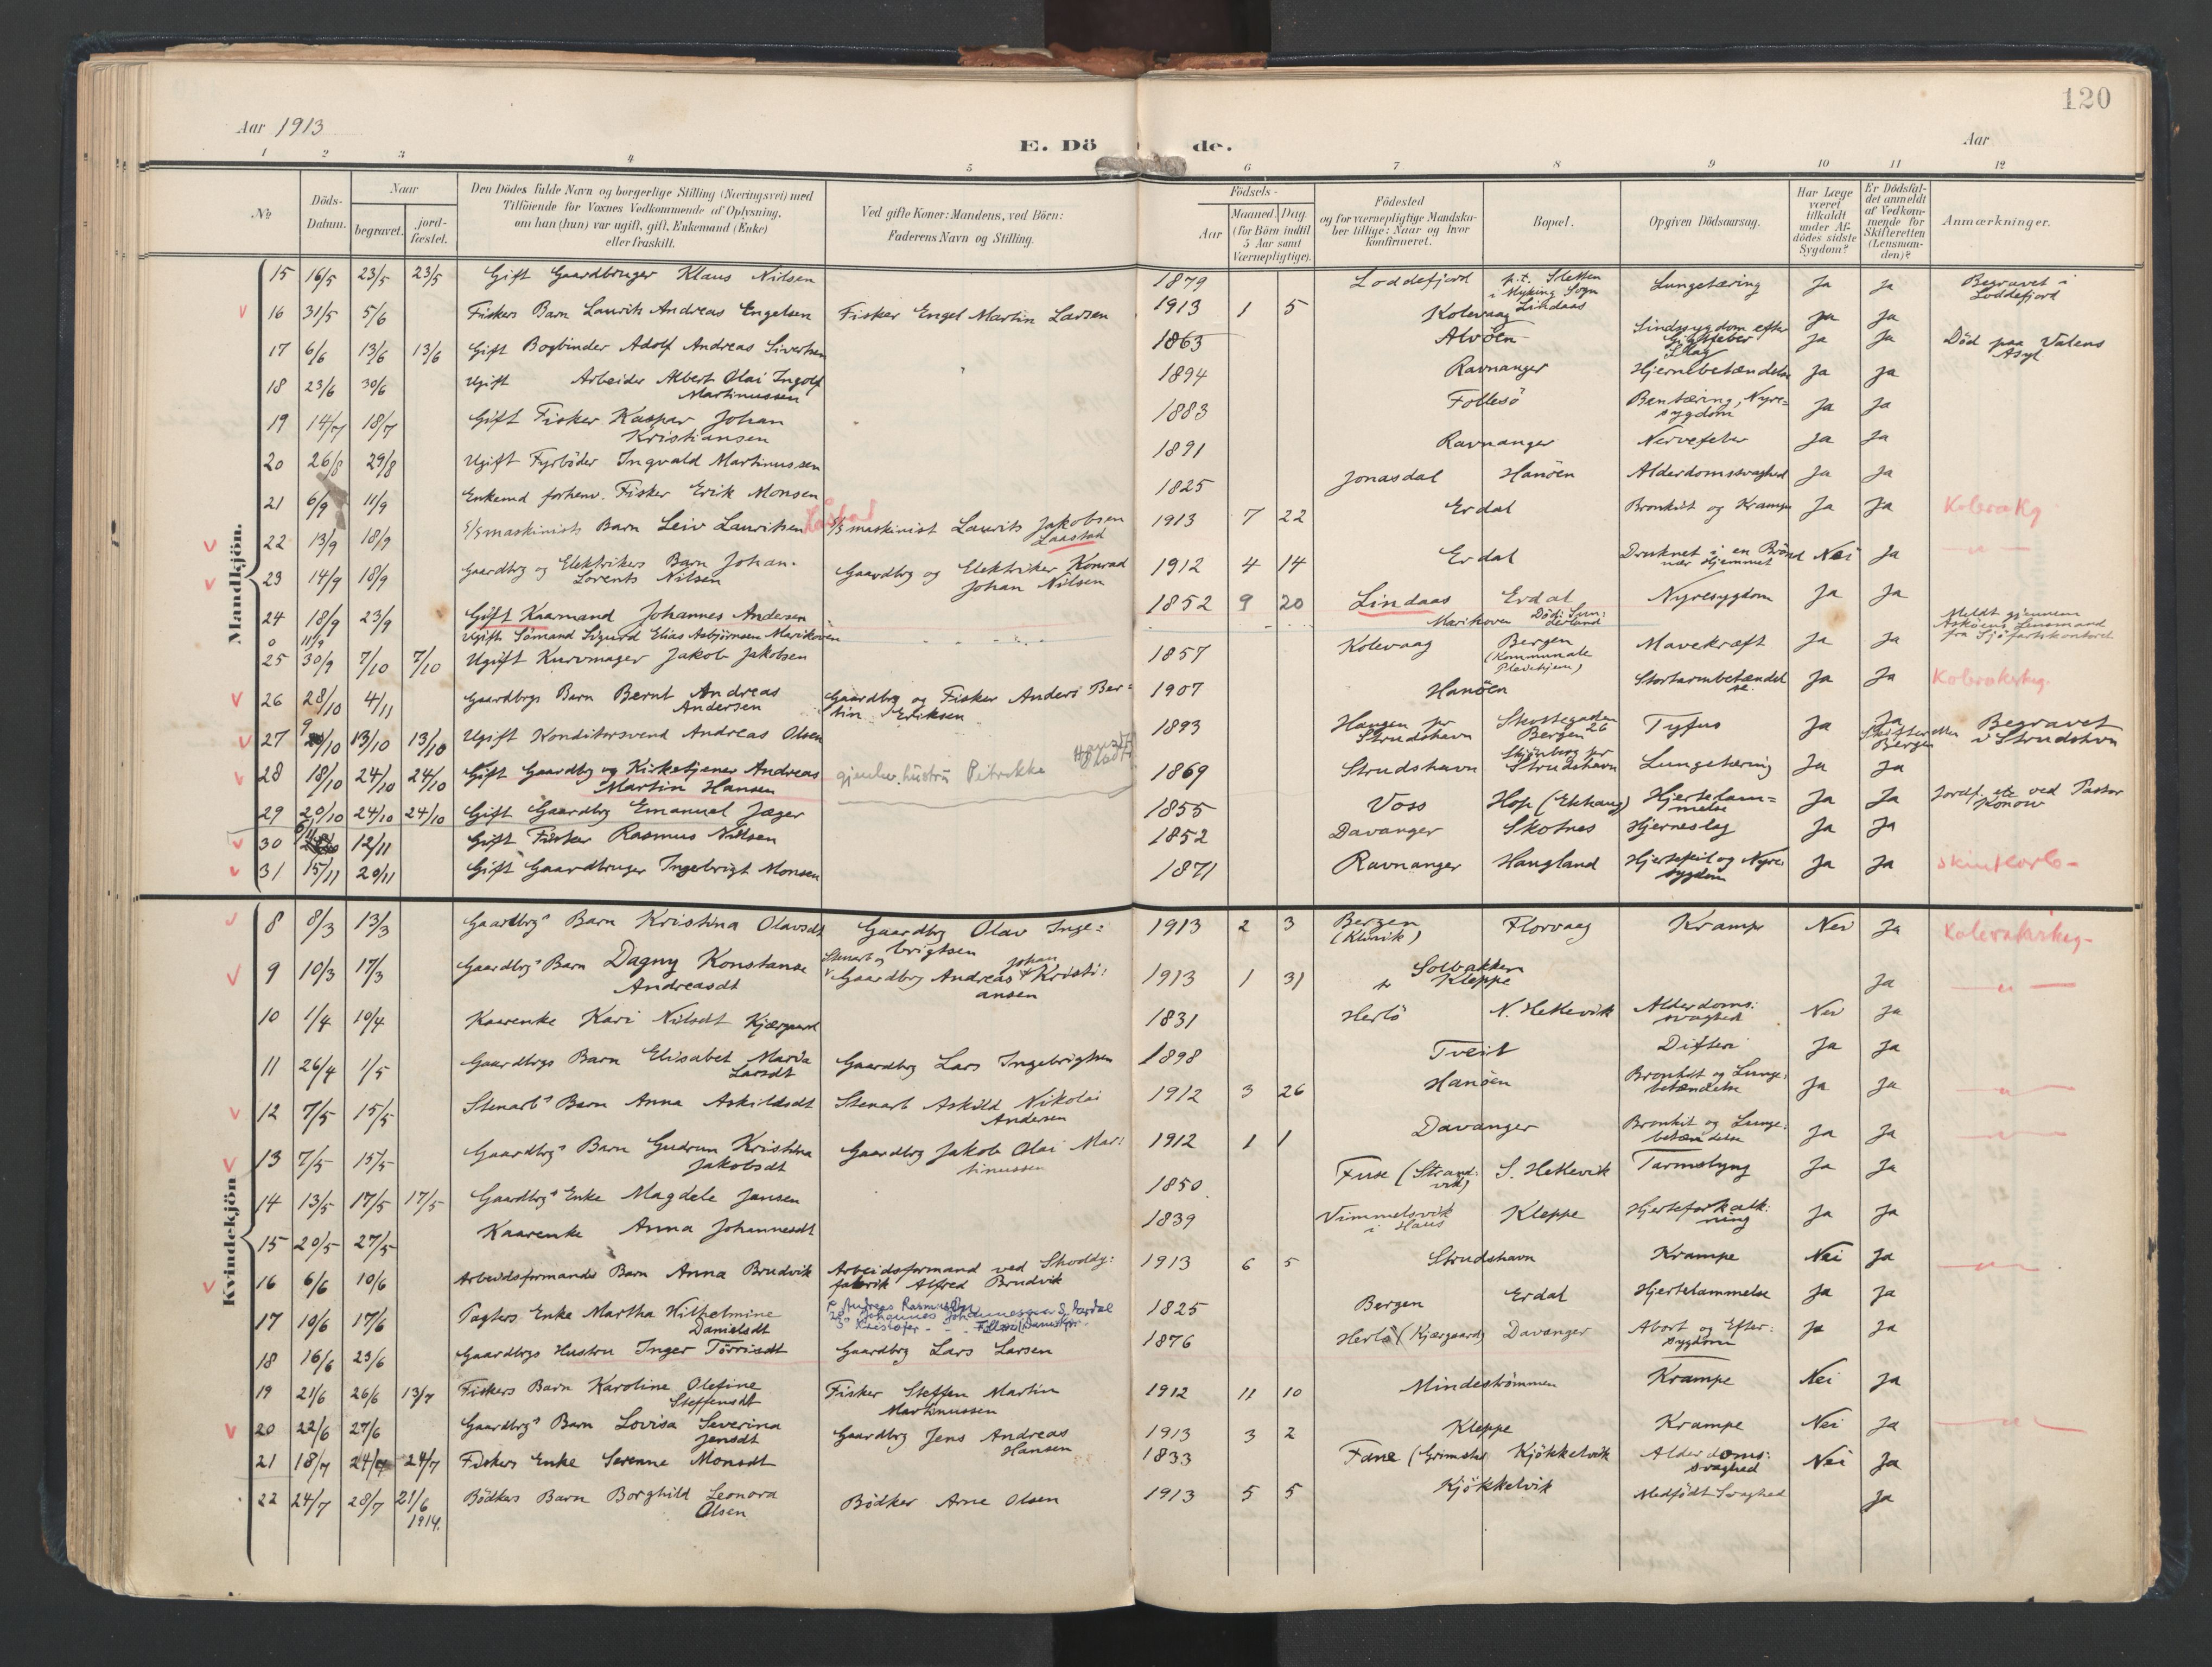 120
Aar 1913
E. Dö de.
Aar
1 2 3 4 5 6 7 8 9 10 11 12
No
Döds-Datum.
Naar
begravet.
jord-fæstet.
Den Dödes fulde Navn og borgerlige Stilling (Næringsvei) med
Tilföiende for Voxnes Vedkommende af Oplysning,
om han (hun) var ugift, gift, Enkemand (Enke)
eller fraskilt.
Ved gifte Koner: Mandens, ved Börn:
Faderens Navn og Stilling.
Födsels-
Aar
Maaned. Dag.
(for Börn indtil
5 Aar samt
Værnepligtige).
Födested
og for værnepligtige Mandska-
ber tillige: Naar og hvor
konfirmeret.
Bopæl.
Opgiven Dödsaarsag.
Har Læge
været
tilkaldt
under Af-
dödes sidste
Sygdom?
Er Dödsfal-
det anmeldt
af Vedkom-
mende for
Skifteretten
(Lensman-
den)?
Anmærkninger.
Mandkjön.
15 16/5 23/5 23/5 Gift Gaardbruger Klaus Nilsen 1879 Loddefjord p.t. Sletten i Myking Sogn Lindaas Lungetæring Ja Ja Begravet i Loddefjord
16 31/5 5/6 Fiskers Barn Laurits Andreas Engelsen Fisker Engel Martin Larsen 1913 1 5 Kolevaag Ja Ja
17 6/6 13/6 13/6 Gift Bogbinder Adolf Andreas Sivertsen 1863 Alvöen Sindssygdom efter Gigtfeber Slag Ja Ja Död paa Valens Asyl
18 23/6 30/6 Ugift Arbeider Albert Olai Ingolf Martinussen 1894 Ravnanger Hjernebetændelse Ja Ja
19 14/7 18/7 Gift Fisker Kaspar Johan Kristiansen 1883 Follesö Bentæring, Nyresygdom Ja Ja
20 26/8 29/8 Ugift Fyrböder Ingvald Martinussen 1891 Ravnanger Nervefeber Ja Ja
21 6/9 11/9 Enkemd forhenv. Fisker Erik Monsen 1825 Jonasdal Hanöen Alderdomssvaghed Ja Ja
22 13/9 18/9 S/S maskinists Barn Leiv Lauritsen S/S maskinist Laurits Jakobsen Laastad 1913 7 22 Erdal Bronkit og Krampe Ja Ja
23 14/9 18/9 Gaardbrg og Elektrikers Barn Johan Lorents Nilsen Gaardbrg og Elektriker Konrad Johan Nilsen 1912 4 14 Erdal Druknet i en Brönd nær Hjemmet Nei Ja
24 18/9 23/9 Gift Kaarmand Johannes Andersen 1852 9 20 Lindaas Erdal Nyresygdom Ja Ja
0 11/9 Ugift Sömand Sigurd Elias Asbjörnsen Marikoven Marikoven Död i Sunderland Meldt gjennem Asköens Lensmand fra Sjöfartskontoret
25 30/9 7/10 7/10 Ugift Kurvmager Jakob Jakobsen 1857 Kolevaag Bergen (Kommunale Pleiehjem) Mavekræft Ja Ja
26 28/10 4/11 Gaardbrgs Barn Bernt Andreas Andersen Gaardbrg og Fisker Anders Bertin Eriksen 1907 Hanöen Stortarmbetændelse Ja Ja
27 9/10 13/10 13/10 Ugift Konditorsvend Andreas Olsen 1893 Haugen pr Strudshavn Skottegaden 26 Bergen Tyfus Ja Ja Skifteretten Bergen Begravet i Strudshvn
28 18/10 24/10 24/10 Gift Gaardbrg og Kirketjener Andreas Martin Hansen gjenlev. hustru Petrikke 1869 Strudshavn Skjönberg pr Strudshavn Lungetæring Ja Ja
29 20/10 24/10 24/10 Gift Gaardbrg Emanuel Jæger 1855 Voss Hop (Ekhaug) Hjertelammelse Ja Ja Jordf. etc ved Pastor Konow
30 12/11 Gift Fisker Rasmus Nilsen 1852 Davanger Skotnes Hjerneslag Ja Ja
31 15/11 20/11 Gift Gaardbruger Ingebrigt Monsen 1871 Ravnanger Haugland Hjertefeil og Nyresygdom Ja Ja
Kvindekjön
8 8/3 13/3 Gaardbrgs Barn Kristina Olavsdt Gaardbrg Olav Ingebrigtsen 1913 2 3 Bergen (Klinik) Florvaag Krampe Nei Ja
9 10/3 17/3 Gaardbrgs Barn Dagny Konstanse Andreasdt Stenarb og Gaardbrg Andreas Johan Kristiansen 1913 1 31 Solbakken Kleppe Ja
10 1/4 10/4 Kaarenke Kari Nilsdt Kjærgaard 1831 Herlö N. Hetlevik Alderdomssvaghed Nei Ja
11 26/4 1/5 Gaardbrgs Barn Elisabet Maria Larsdt Gaardbrg Lars Ingebrigtsen 1898 Tveit Difteri Ja Ja
12 7/5 15/5 Stenarbs Barn Anna Askildsdt Stenarb Askild Nikolai Andersen 1912 3 26 Hanöen Bronkit og Lungebetændelse Ja Ja
13 7/5 15/5 Gaardbrgs Barn Gudrun Kristina Jakobsdt Gaardbrg Jakob Olai Martinussen 1912 1 1 Davanger Bronkit og Lungebetændelse Ja Ja
14 13/5 17/5 17/5 Gaardbrgs Enke Magdele Jansen 1850 Fuse (Strandvik) S. Hetlevik Tarmslyng Ja Ja
15 20/5 27/5 Kaarenke Anna Johannesdt 1839 Vimmelsvik i Haus Kleppe Hjerteforkalkning Ja Ja
16 6/6 10/6 Arbeidsformands Barn Anna Brudvik Arbeidsformand ved Shoddyfabrik Alfred Brudvik 1913 6 5 Strudshavn Krampe Nei Ja
17 10/6 17/6 Tagters Enke Martha Wilhelmine Danielsdt 1825 Bergen Erdal Hjertelammelse Ja Ja
18 16/6 23/6 Gaardbrgs Hustru Inger Törrisdt Gaardbrg Lars Larsen 1876 Herlö (Kjærgaard) Davanger Abort og Eftersygdom Ja Ja
19 21/6 26/6 13/7 Fiskers Barn Karoline Olefine Steffensdt Fisker Steffen Martin Martinussen 1912 11 10 Mindeströmmen Krampe Nei Ja
20 22/6 27/6 Gaardbrgs Barn Lovisa Severina Jensdt Gaardbrg Jens Andreas Hansen 1913 3 2 Kleppe Krampe Nei Ja
21 18/7 24/7 24/7 Fiskers Enke Serenne Monsdt 1833 Fane (Grimstad Kjökkelvik Alderdomssvaghed Nei Ja
22 24/7 28/7 21/6 1914. Bödkers Barn Borghild Leonora Olsen Bödker Arne Olsen 1913 5 5 Kjökkelvik Medfödt Svaghed Ja